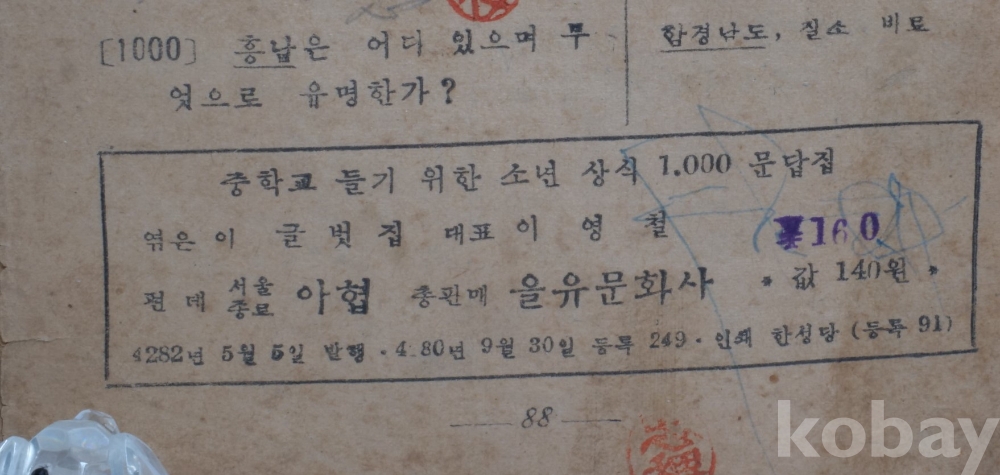 [1000] 흥남은 어디 있으며 무
엇으로 유명한가?
함경남도, 질소 비료
중학교 들기 위한 소년 상식 1.000 문답집
엮은 이 글 벗 집 대표 이 영 철
¥160
편 데 서울 종로 아협 총판매 을유문화사 * 값 140원 *
4282년 5월 5일 발행·4 80년 9월 30일 등록 249·인쇄 한성당 (등록 91)
88
kobay